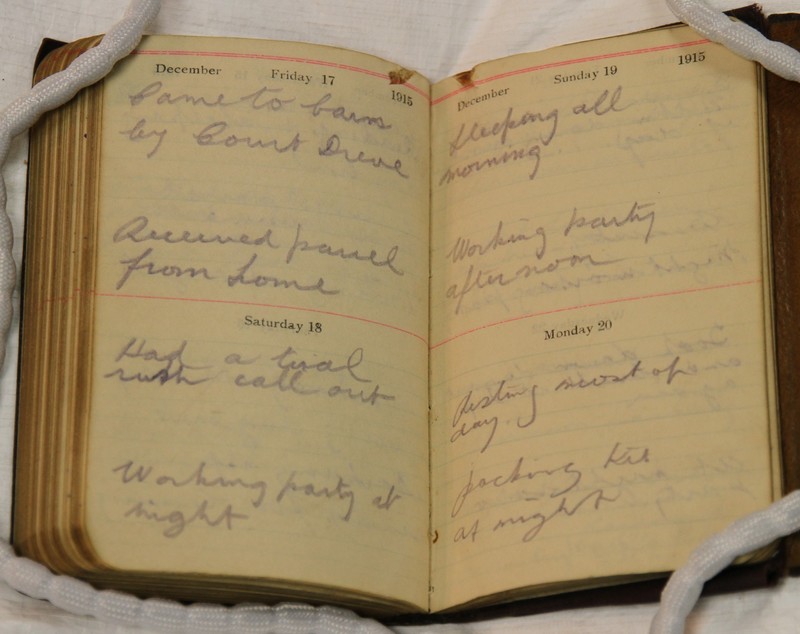 December Friday 17 1915
Came to barn
by Court Dreve
Received parcel
from home
Saturday 18
Had a trial
rush call out
Working party at
night
December Sunday 19 1915
Sleeping all
morning
Working party
afternoon
Monday 20
Resting most of
day.
packing kit
at night